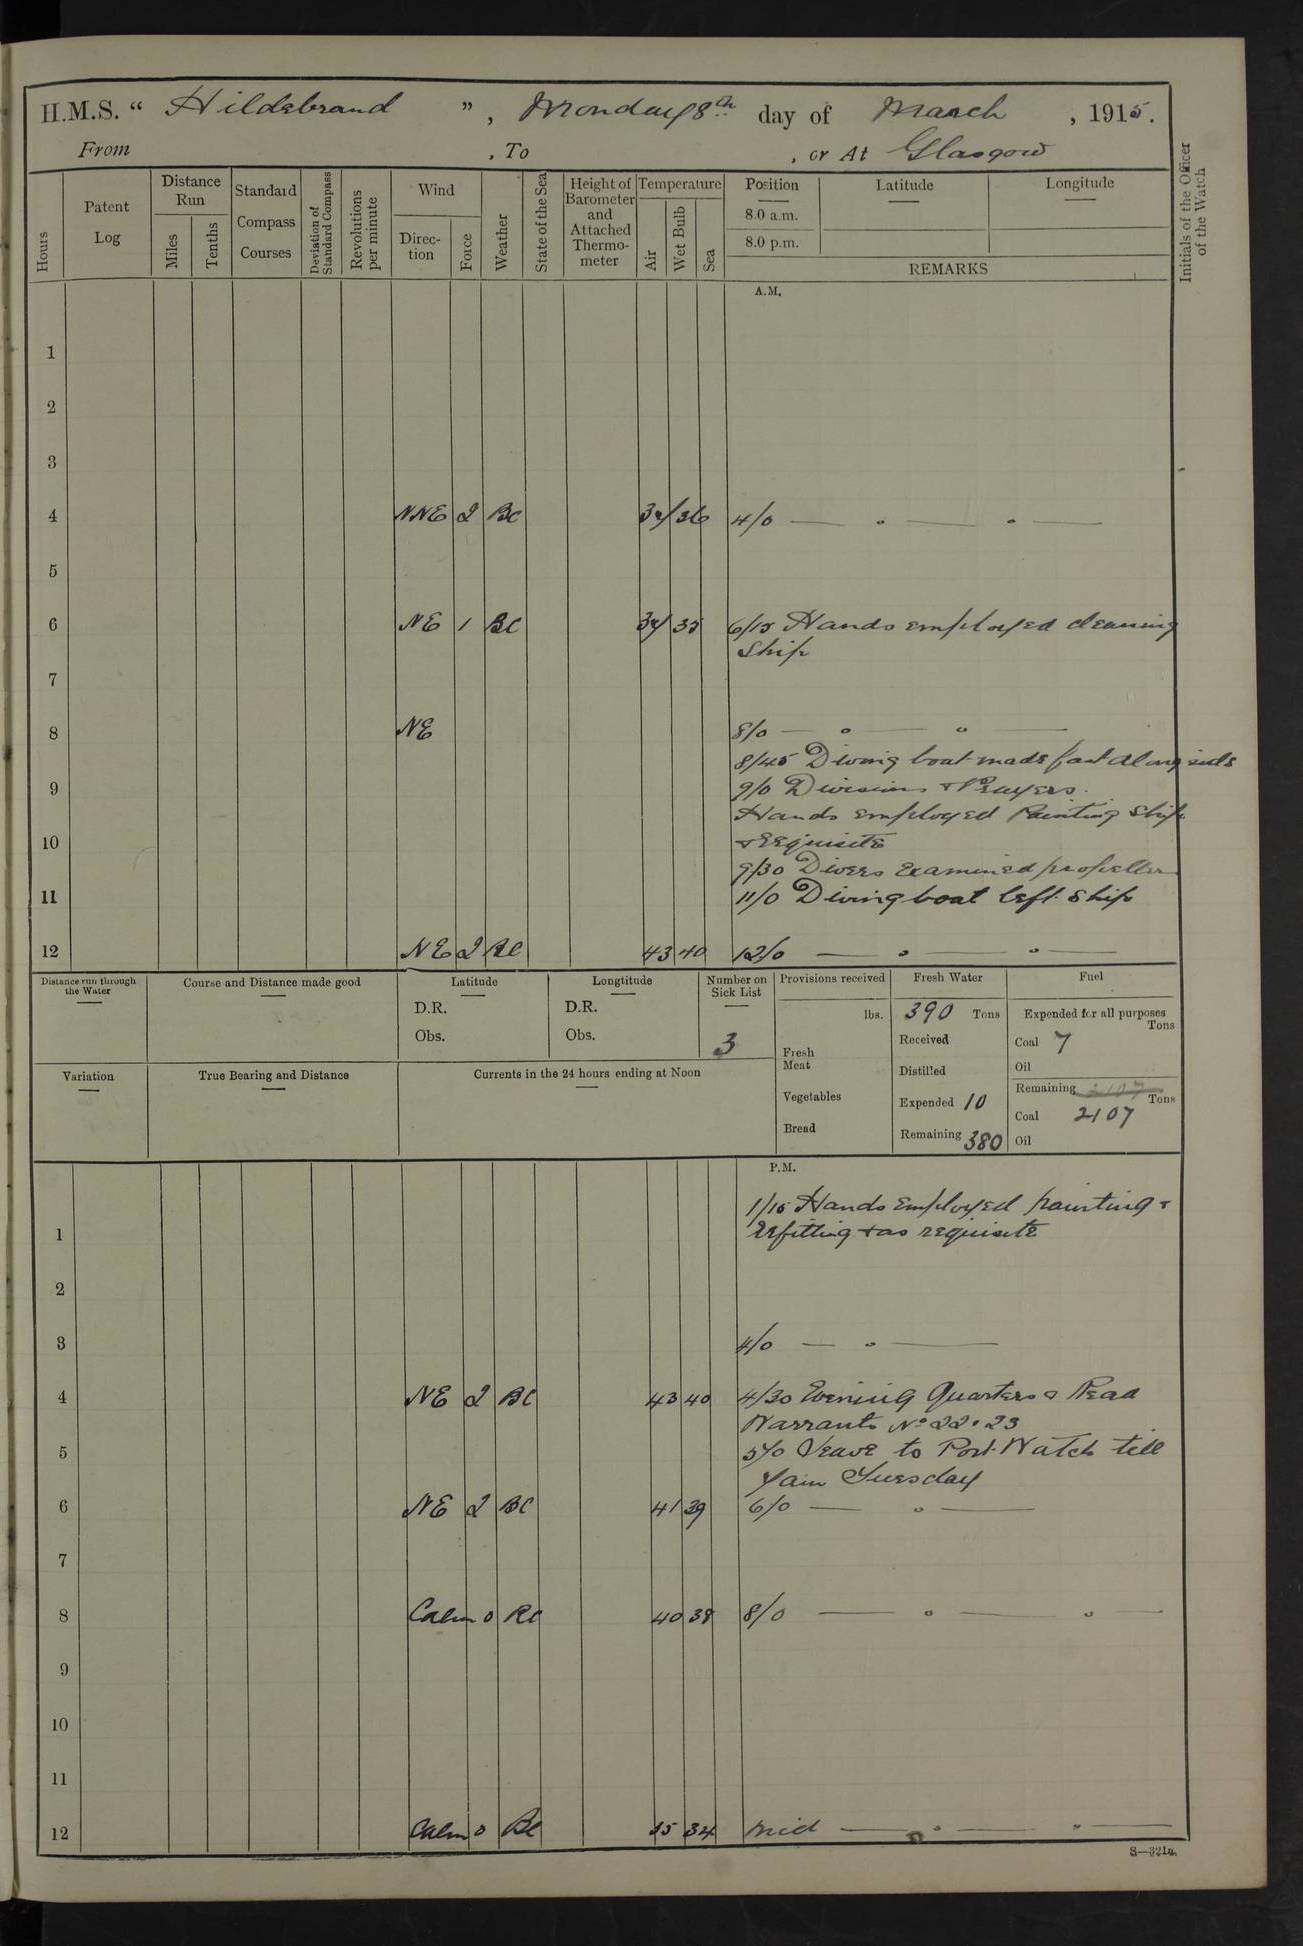 H.M.S. “ Hildebrand ”, Monday 8th day of March, 1915.
From , To , or At Glasgow
Hours
Patent Log
Distance Run
Miles
Tenths
Standard Compass Courses
Deviation of Standard Compass
Revolutions per minute
Wind
Direction
Force
Weather
State of the Sea
Height of Barometer and Attached Thermometer
Temperature
Air
Wet Bulb
Sea
Position
8.0 a.m.
8.0 p.m.
Latitude
Longitude
REMARKS
Initials of the Officer of the Watch
A.M.
1
2
3
4 NNE 2 BC 36 4/0 — " — " —
5
6 NE 1 BC 35 6/15 Hands employed cleaning
Ship
7
8 NE 8/0 — " — " —
8/45 Diving boat made fast alongside
9 9/0 Divisions & Prayers.
Hands employed Painting Ship
10 & requisite
9/30 Divers examined propeller
11 11/0 Diving boat left ship
12 NE 2 BC 43 40 12/0 — " — " —
Distance run through the Water
Course and Distance made good
Latitude
D.R.
Obs.
Longtitude
D.R.
Obs.
Number on Sick List
3
Provisions received
lbs.
Fresh Meat
Vegetables
Bread
Fresh Water
390 Tons
Received
Distilled
Expended 10
Remaining 380
Fuel
Expended for all purposes
Tons
Coal 7
Oil
Remaining 2107
Tons
Coal 2107
Oil
Variation
True Bearing and Distance
Currents in the 24 hours ending at Noon
P.M.
1/15 Hands employed painting &
1 refitting & as requisite
2
3 4/0 — " —
4 NE 2 BC 43 40 4/30 Evening Quarters & Read
Warrants No 22 & 23
5 5/0 Leave to Port Watch till
7am Tuesday
6 NE 2 BC 41 39 6/0 — " —
7
8 Calm 0 BC 40 38 8/0 — " — " —
9
10
11
12 Calm 0 BC 35 34 Mid — " — " —
S—321a.